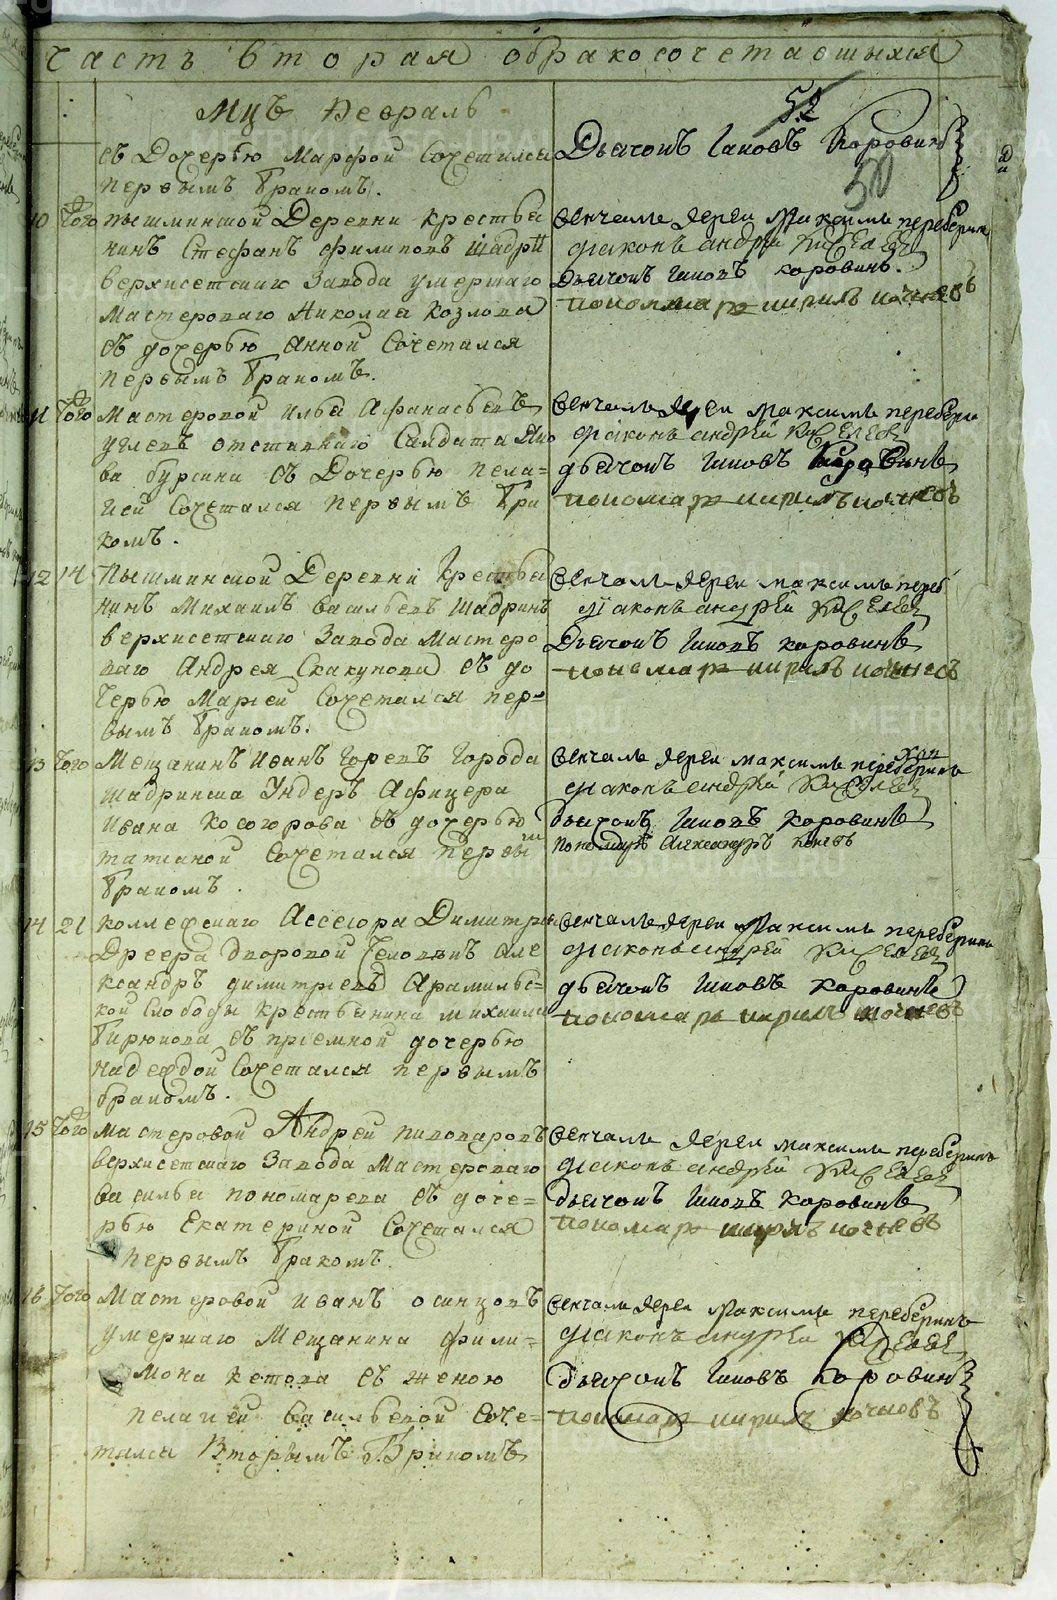 часть вторая обракосочетавшихся
Мцъ Февраль
52
50
съ Дочерью Марфой Сочетался
первымъ бракомъ.
Дьячокъ Іаковъ Коровинъ
10 Того
пышминской Деревни крестья
нинъ Стефанъ филиповъ шадри
верхисетскаго Завода умершаго
Мастероваго Николая Козлова
съ дочерью Анной Сочетался
первымъ бракомъ.
венчали Іереи Максимъ переберинъ
діаконъ андрей Киселевъ
Дьячокъ Іаковъ коровинъ.
пономарь кирилъ
11 Того
Мастеровой илья Афанасьевъ
углевъ отставнаго Салдата Яко
ва бурсина съ Дочерью пела-
геи Сочетался первымъ бра
комъ.
венчали Іереи Максимъ перебери
діаконъ андрей Киселевъ
дьячокъ Іаковъ Коровинъ
пономарь кирилъ
12 14
Пышминской Деревни крестья
нинъ Михаилъ васильевъ шадринъ
верхисетскаго Завода мастеро
ваго Андрея Скакунова съ до
черью Марьей Сочетался пер-
вымъ бракомъ.
венчали Іереи максимъ переб
діаконъ андрей Киселевъ
Дьячокъ Іаковъ коровинъ
пономарь кирилъ
13 Того
Мещанинъ Иванъ Горевъ города
шадринска Ундеръ Афицера
Ивана Косогорова съ дочерью
татианой Сочетался первы
бракомъ.
венчали Іереи максимъ переберинъ
діаконъ андрей Киселевъ
дьячокъ Іаковъ коровинъ
пономарь Александръ
14 21
коллежскаго Ассесора Димитрия
Дреера дворовой Человекъ але
ксандръ димитриевъ Арамильс-
кой слободы крестьянина михаила
бирюкова съ приемной дочерью
надеждой Сочетался первымъ
бракомъ.
венчали Іереи Максимъ переберинъ
діаконъ андрей Киселевъ
дьячокъ Іаковъ коровинъ
пономарь кирилъ
15 Того
Мастеровой Андрей пивоваровъ
верхисетскаго Завода Мастероваго
василья пономарева съ доче-
рью Екатериной Сочетался
первымъ бракомъ.
венчали Іереи максимъ переберинъ
діаконъ андрей Киселевъ
дьячокъ Іаковъ коровинъ
пономарь кирилъ
16 Того
Мастеровой иванъ осинцовъ
умершаго Мещанина фили-
мона кетова съ женою
пелагией васильевой Соче-
тался Вторымъ Бракомъ
венчали Іереи Максимъ переберинъ
діаконъ андрей Киселевъ
дьячокъ Іаковъ Коровинъ
пономарь кирилъ